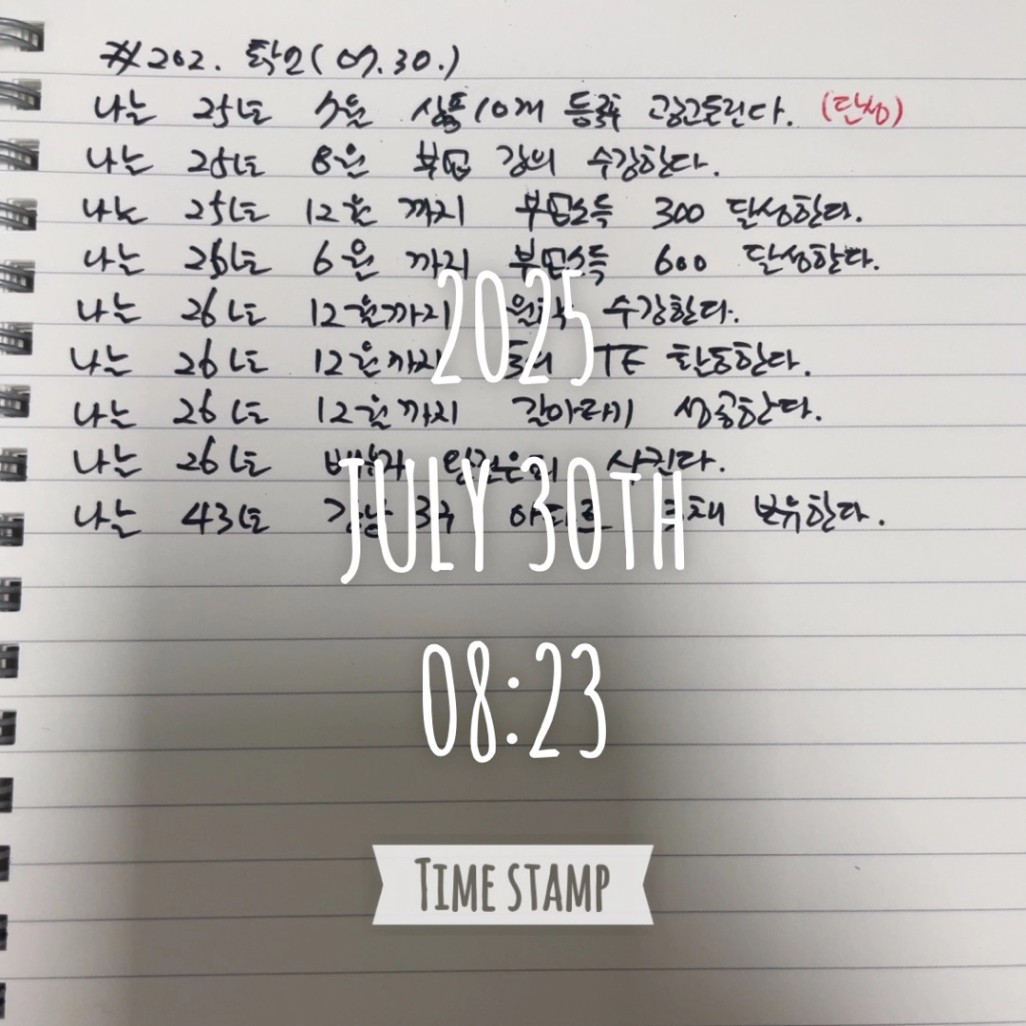 #202. 확언(07.30.)
나는 25년 7월 상품10개 등록후 광고돌린다. (달성)
나는 25년 8월 부업 강의 수강한다.
나는 25년 12월 까지 부업소득 300 달성한다.
나는 26년 6월 까지 부업소득 600 달성한다.
나는 26년 12월까지 수강한다.
나는 26년 12월까지 TF 활동한다.
나는 26년 12월까지 갈아타기 성공한다.
나는 26년 사귄다.
나는 43년 강남 3구 보유한다.
2025
JULY 30TH
08:23
TIME STAMP